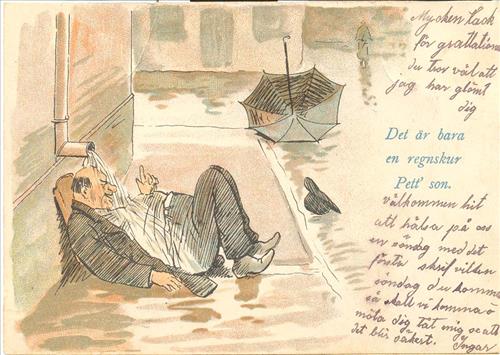 Mycken tack
för grattlationen
du tror väl att
jag har glömt
dig
Det är bara
en regnskur
Pett' son.
välkommen hit
att hälsa på oss
en söndag med det
första skrif vilken
söndag du komma
så skall vi komma o
möta dig låt mig se att
det blir säkert. Ingar